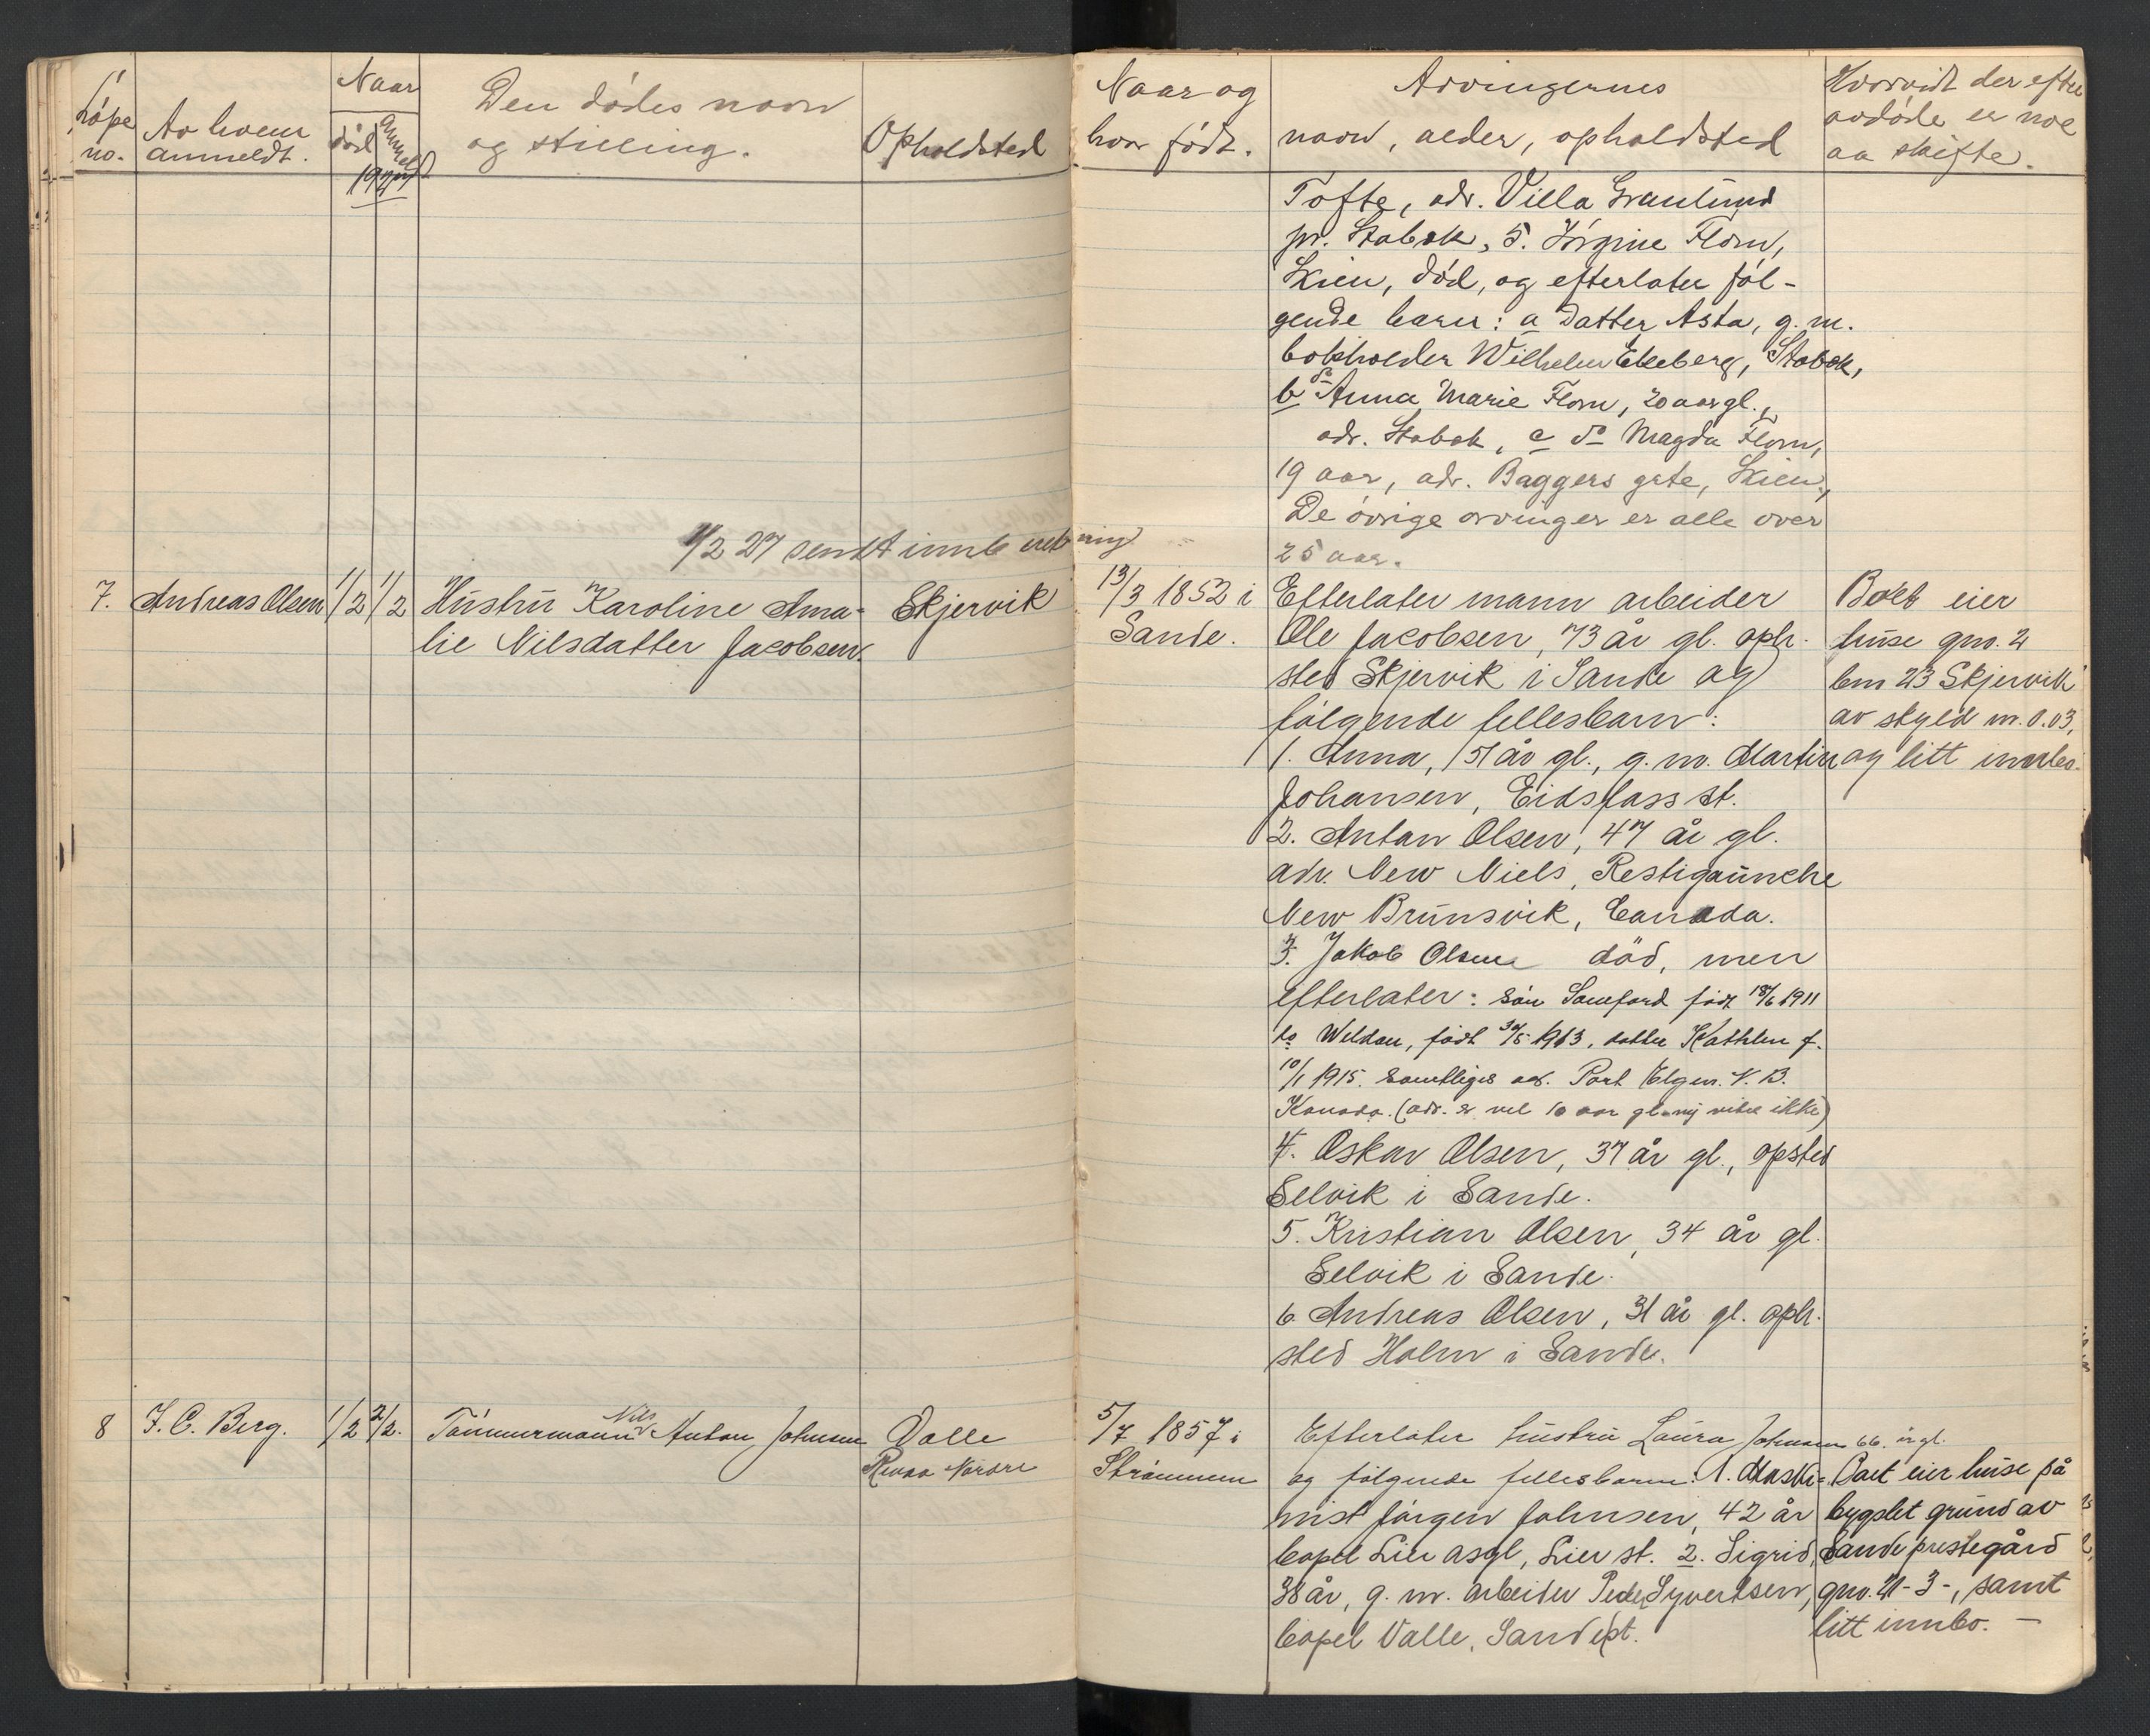 Løpe no.
Av hvem anmeldt.
Naar
død
anmeldt
1927
Den dødes navn
og stilling.
Opholdsted
Naar og
hvor født.
Arvingernes
navn, alder, opholdsted
Hvorvidt der efter
avdøde er noe
aa skifte.
Tofte, adr. Villa Granlund
pr. Stabæk, 5. Jørgine Flom,
Skien, død, og efterlater føl-
gende barn: a datter Asta, g. m.
bokholder Wilhelm Ekeberg, Stabæk,
b do Anna Marie Flom, 20 aar gl.,
adr. Stabæk, c do Magda Flom,
19 aar, adr. Baggers gate, Skien,
De øvrige arvinger er alle over
25 aar.
1/2 27 sendt innb
7.
Andreas Olsen
1/2
1/2
Hustru Karoline Ama-
lie Nilsdatter Jacobsen.
Skjervik
13/3 1852 i
Sande.
Efterlater mann arbeider
Ole Jacobsen, 73 år gl. oph.
sted Skjervik i Sande og
følgende fellesbarn:
1. Anna, 51 år gl., g. m. Martin
Johansen, Eidsfoss st.
2. Anton Olsen, 47 år gl.
adr. New Niels, Restigounche
New Brunsvik, Canada.
3. Jakob Olsen død, men
efterlater: søn Sameford født 18/6 1911
do Weldon, født 30/5 1913, datter Kathlen f.
10/1 1915. samtliges adr. Port Elgen. N. B.
Kanada. (adr. er vel 10 aar gl. ny vites ikke)
4. Oskar Olsen, 37 år gl., opsted
Selvik i Sande.
5. Kristian Olsen, 34 år gl.
Selvik i Sande.
6 Andreas Olsen, 31 år gl. oph.
sted Holm i Sande.
Boet eier
huse gno. 2
bno 23 Skjervik
av skyld m. 0.03,
og litt innbo.
8
J. C. Berg.
1/2
2/2.
Tømmermann Nils Anton Johnsen
Valle
Revaa Nordre
5/7 1857 i
Strømmen
Efterlater hustru Laura Johnsen 66 år gl.
og følgende fellesbarn: 1. Maski-
nist Jørgen Johnsen, 42 år
bopel Lier asyl, Lier st. 2. Sigrid,
38 år, g. m. arbeider Peder Syvertsen,
bopel Valle, Sande st.
Boet eier huse på
bygslet grund av
Sande prestegård
gno. 21-3-, samt
litt innbo. —